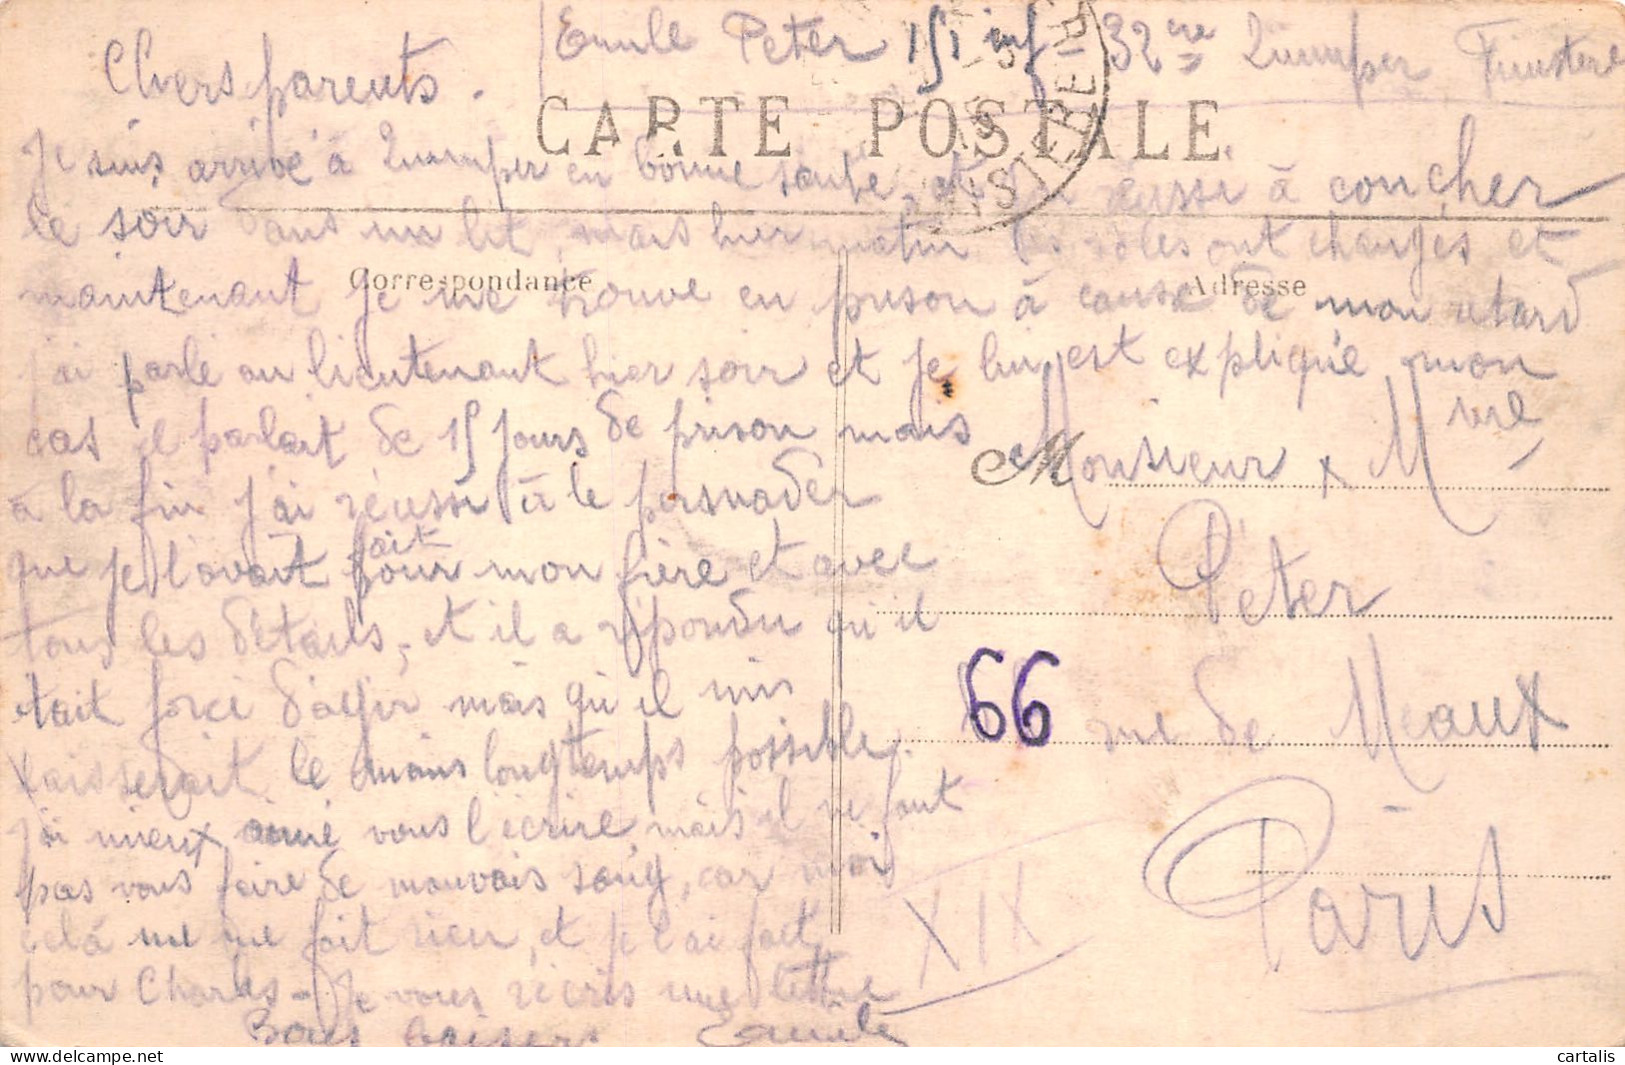 Emile Peter 151 inf 32 ere Quimper Finistere
Chers parents.
CARTE POSTALE
FINISTERE
Je suis arrivé à Quimper en bonne santé, et réussi à concher
le soir dans un lit, mais hier matin les rôles ont changés et
Correspondance
Adresse
maintenant je me trouve en prison à cause de mon retard
j'ai parlé au lieutenant hier soir et je lui est expliqué mon
cas il parlait de 15 jours de prison mais
à la fin j'ai réeussi à le persuader
que je l'avait fait pour mon frère et avec
tous les détails, et il a répondu qu'il
etait forcé d'agir mais qu'il mis
laisserait le moins longtemps possible.
j'ai mieux aimé vous l'écrire, mais il ne faut
pas vous faire de mauvais sang, car moi
celà me me fait rien, et je l'ai fait
pour Charles - Je vous récris une lettre
Bons baisers Emile
M
Monsieur x Mme
Peter
66 rue de Meaux
Paris
XIX
cartalis